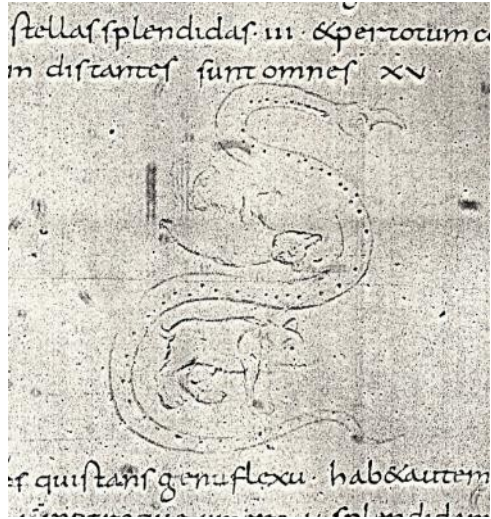 stellas splendidas · iii · & per totum
distantes sunt omnes xv
qui stans genuflexu · hab& autem